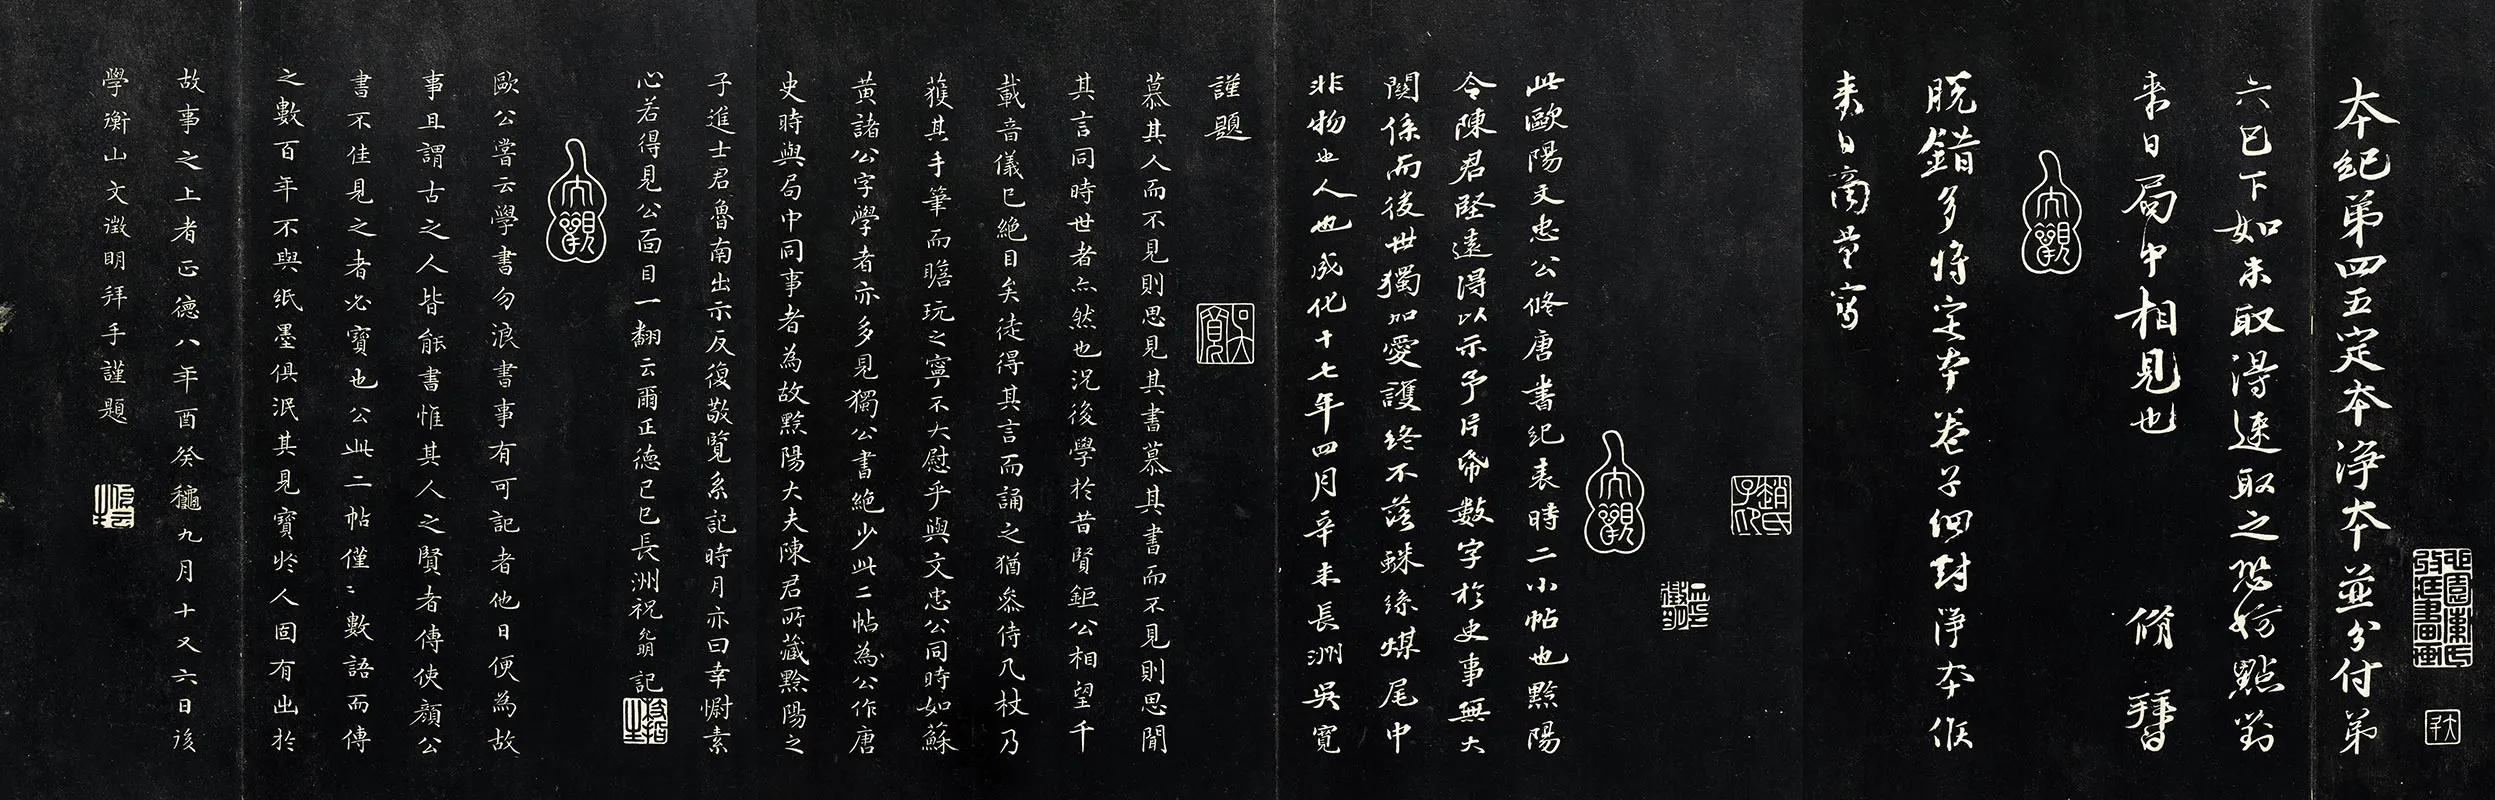 本紀第四五定本淨本並分付第
六已下如未取得速取之恐妨點對
來日局中相見也 脩 拜
脱錯多將定本卷子細對淨本候
來日商量寫
大觀
大觀
此歐陽文忠公脩唐書紀表時二小帖也黟陽
令陳君堅遠得以示予片帋數字於史事無大
関係而後世獨加愛護終不落蛛絲煤尾中
非物也人也成化十七年四月辛未長洲吳寬
謹題
原博
慕其人而不見則思見其書慕其書而不見則思聞
其言同時世者尒然也況後學於昔賢鉅公相望千
載音儀已絶目矣徒得其言而誦之猶叅侍几杖乃
獲其手筆而瞻玩之寧不大慰乎與文忠公同時如蘇
黄諸公字學者亦多見獨公書絶少此二帖為公作唐
史時與局中同事者為故黟陽大夫陳君所藏黟陽之
子進士君魯南出示反復敬覽系記時月亦曰幸慰素
心若得見公面目一翻云爾正德己巳長洲祝允明記
大觀
歐公嘗云學書勿浪書事有可記者他日便為故
事且謂古之人皆能書惟其人之賢者傳使顏公
書不佳見之者必寶也公此二帖僅〻數語而傳
之數百年不與紙墨俱泯其見寶於人固有出於
故事之上者正德八年酉癸龝九月十又六日後
學衡山文徵明拜手謹題